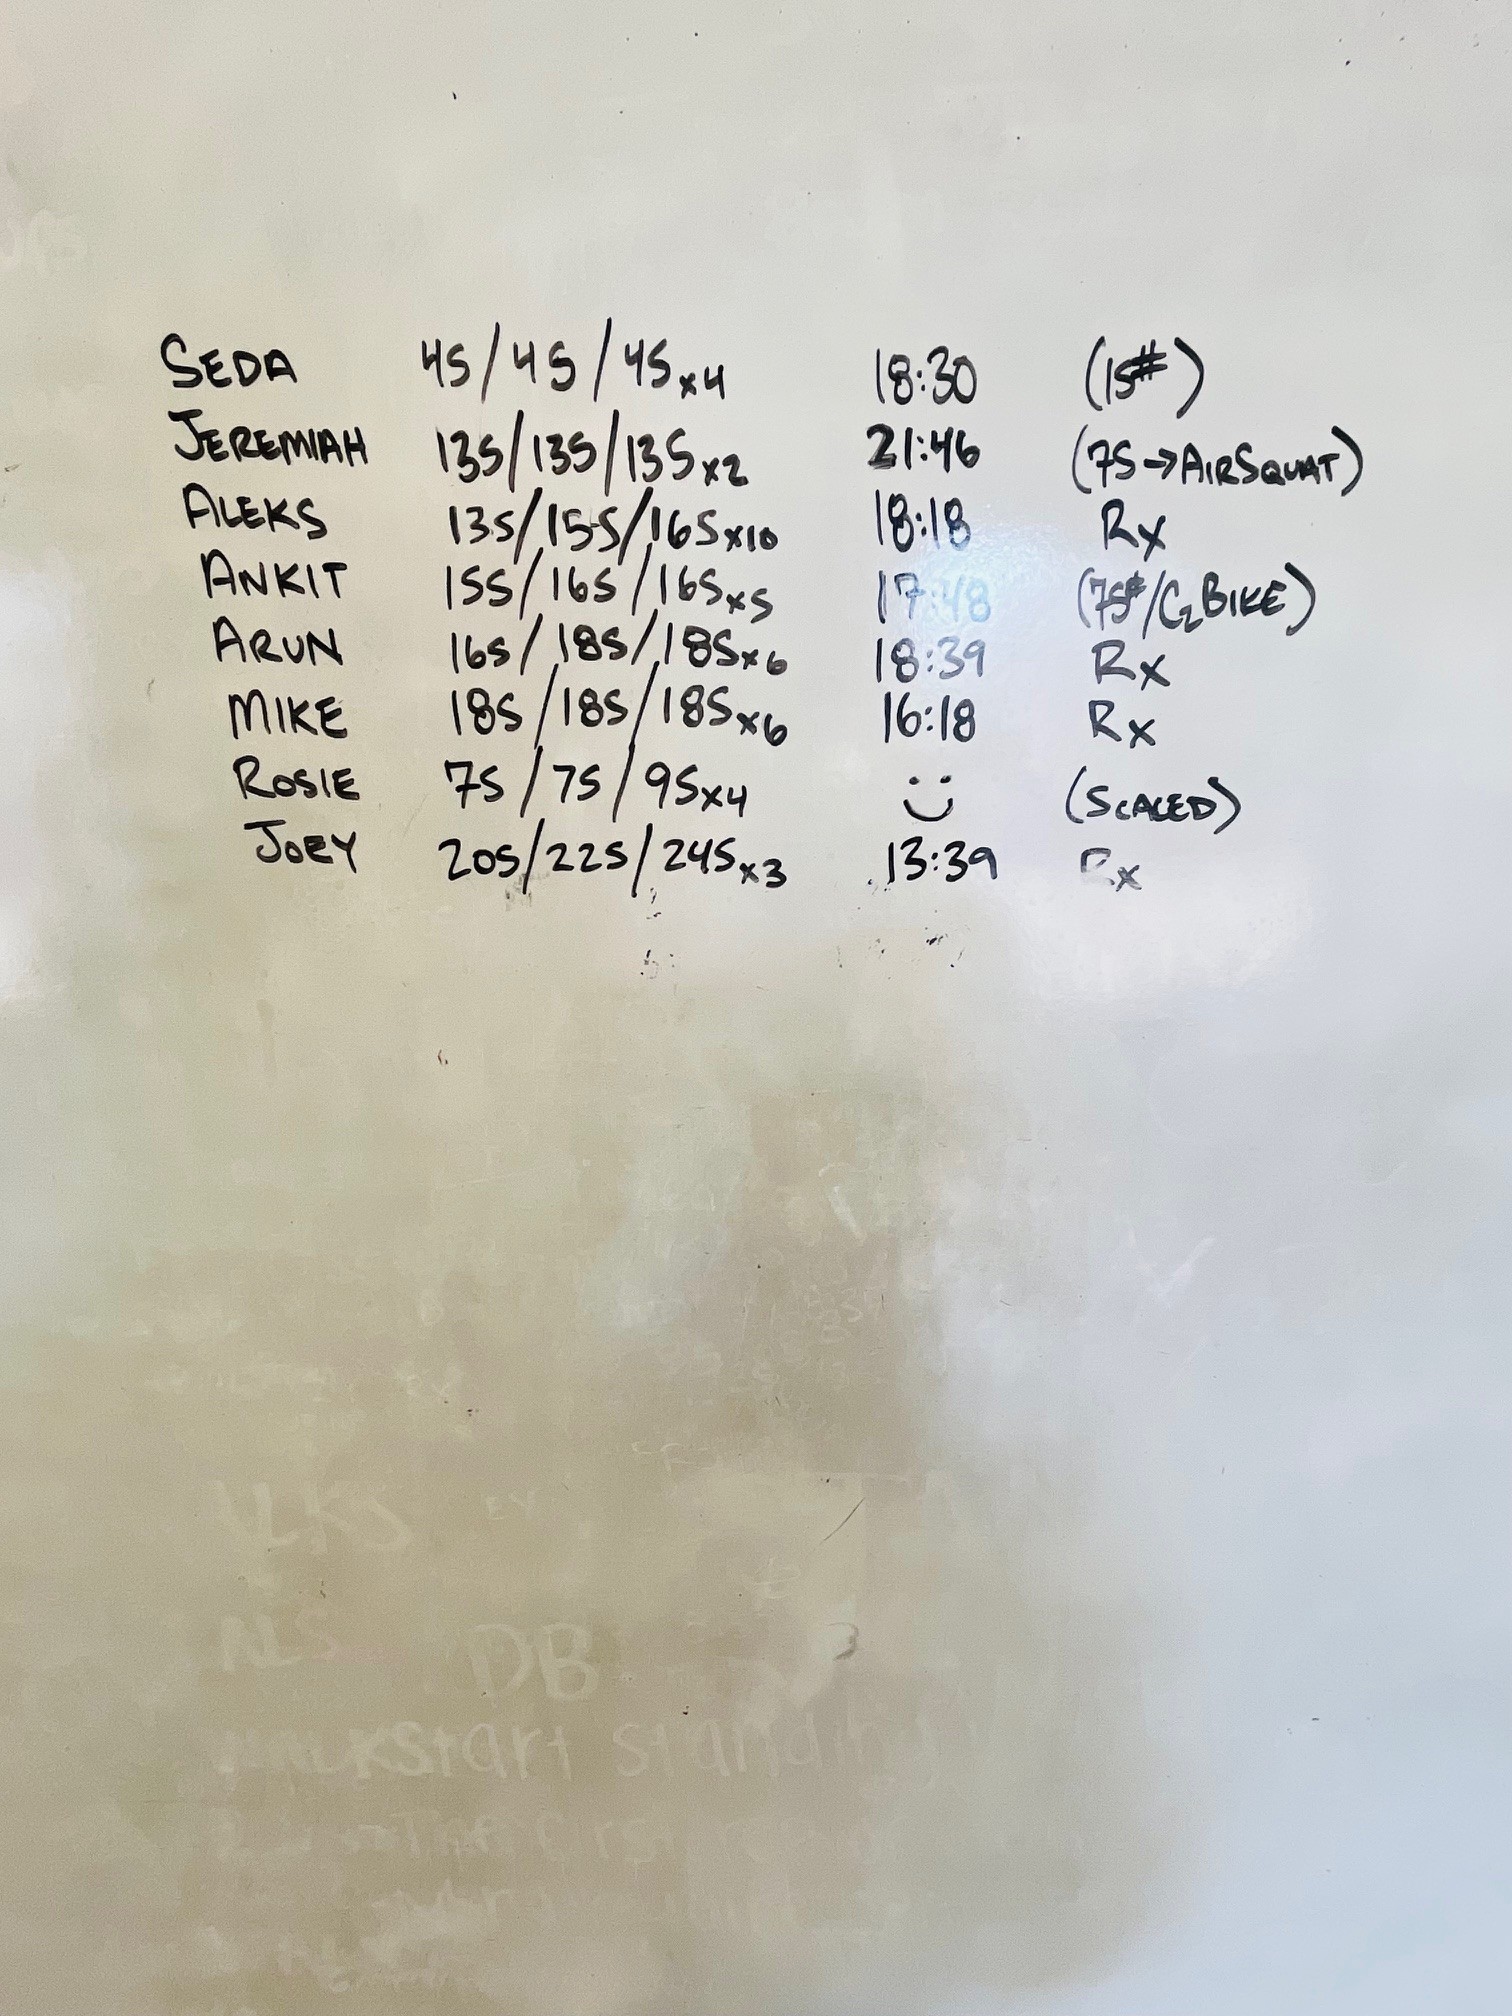 SEDA 45/45/45x4 18:30 (15#)
JEREMIAH 135/135/135x2 21:46 (75→AIRSQUAT)
ALEKS 135/155/165x10 18:18 Rx
ANKIT 155/165/165x5 17:48 (75#/C2 BIKE)
ARUN 165/185/185x6 18:39 Rx
MIKE 185/185/185x6 16:18 Rx
ROSIE 75/75/95x4 (SCALED)
JOEY 205/225/245x3 13:39 Rx
DB